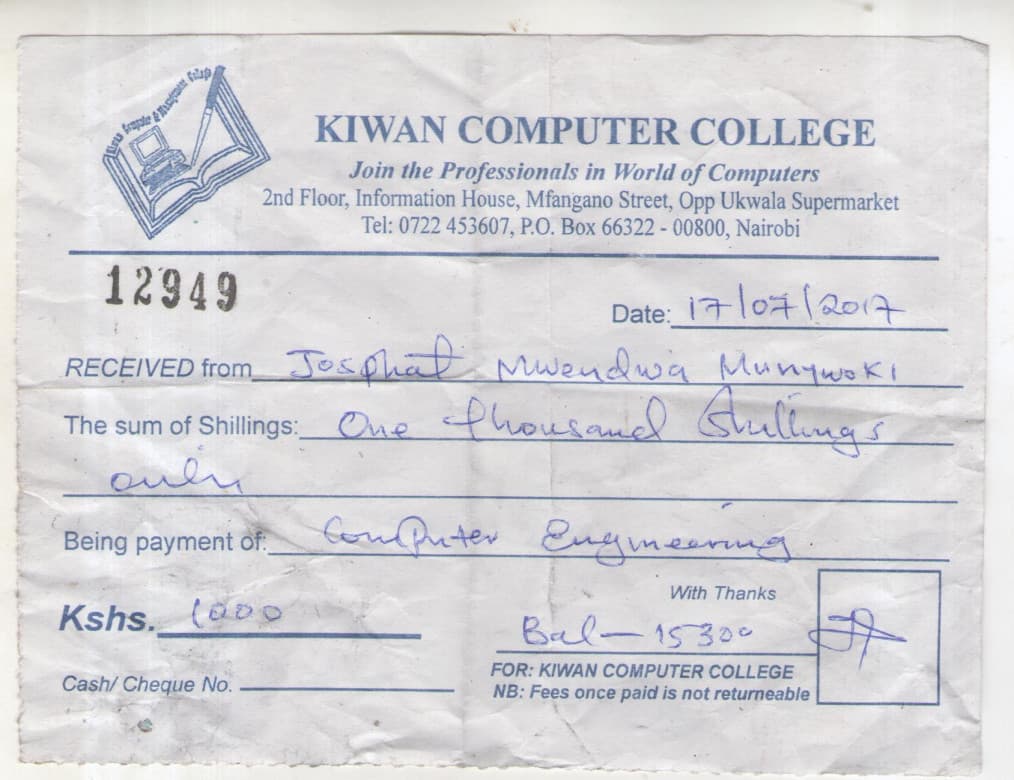 Kiwan Computer & Management College
KIWAN COMPUTER COLLEGE
Join the Professionals in World of Computers
2nd Floor, Information House, Mfangano Street, Opp Ukwala Supermarket
Tel: 0722 453607, P.O. Box 66322 - 00800, Nairobi
12949
Date: 17/07/2017
RECEIVED from Josphat Mwendwa Munywoki
The sum of Shillings: One thousand Shillings
only
Being payment of: Computer Engineering
With Thanks
Kshs. 1000
Bal - 15300
FOR: KIWAN COMPUTER COLLEGE
Cash/ Cheque No.
NB: Fees once paid is not returneable